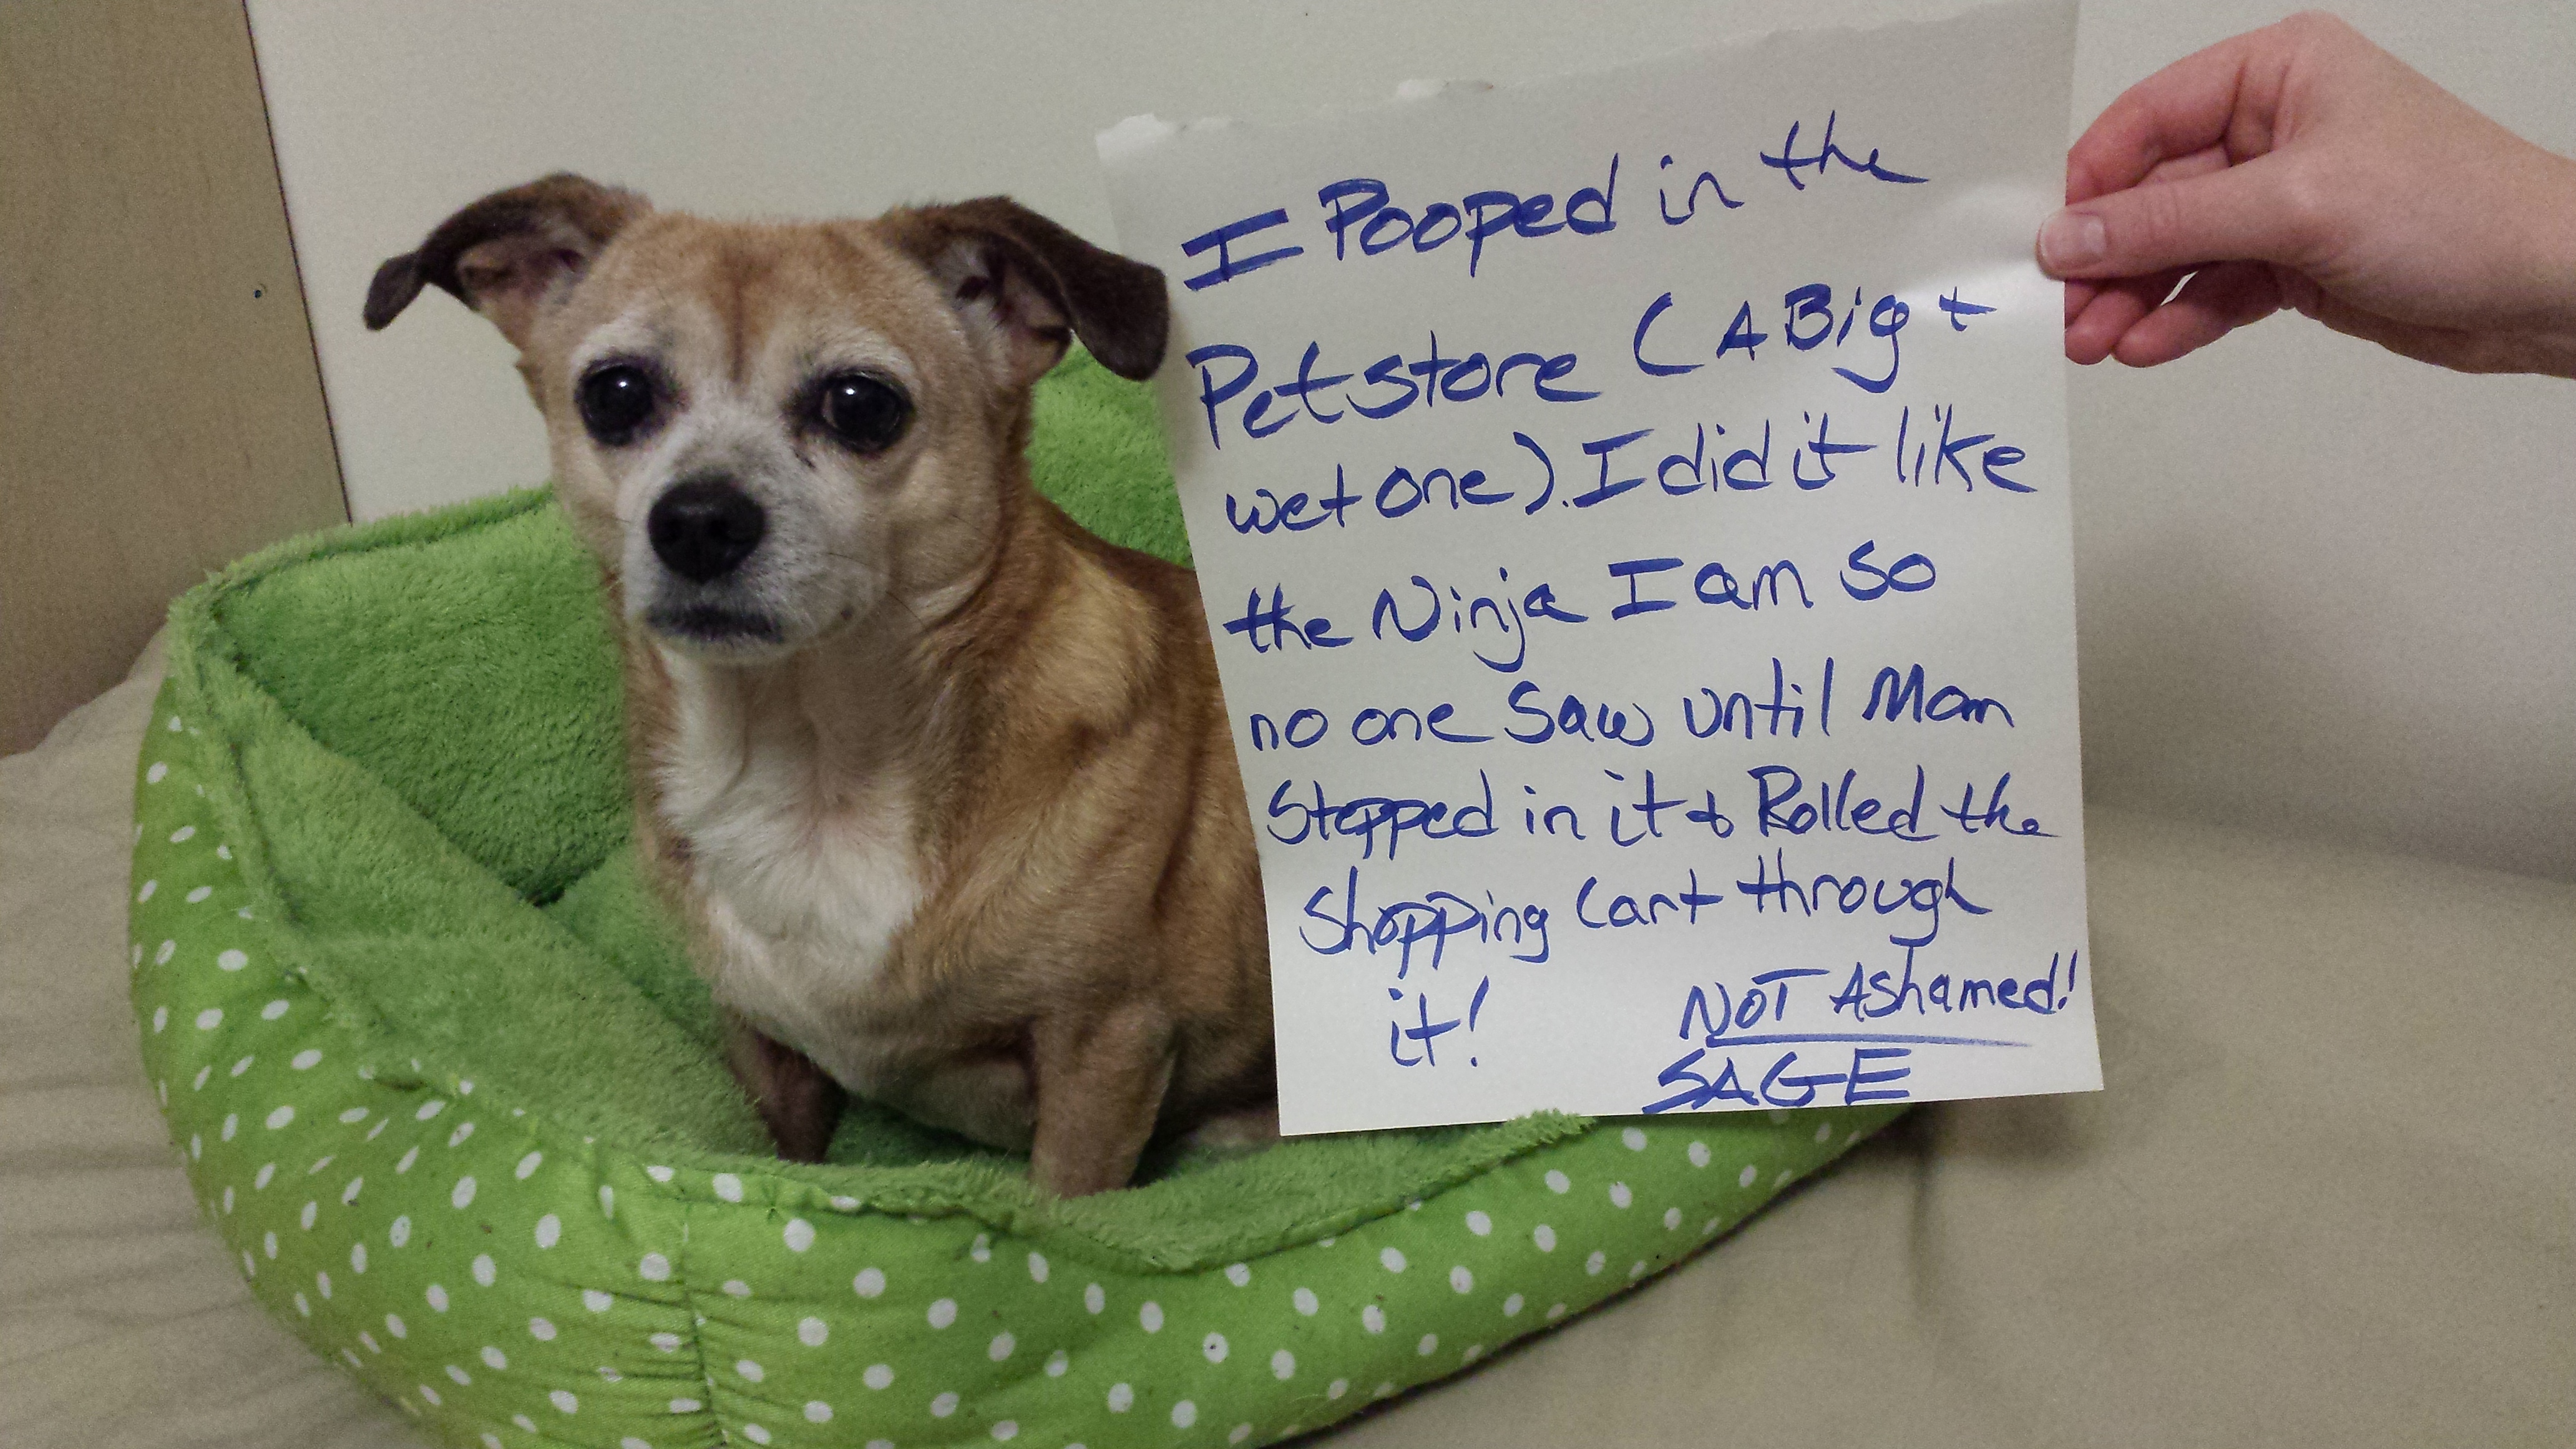 I Pooped in the
Petstore (A Big +
wet one). I did it like
the Ninja I am so
no one saw until Mom
Stepped in it & Rolled the
Shopping Cart through
it!
NOT Ashamed!
SAGE